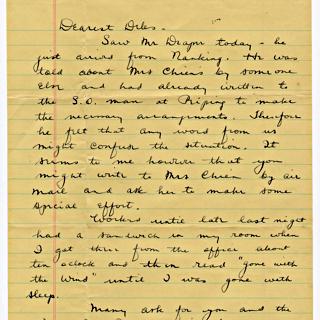 Dearest Deles -
Saw Mr Draper today - he
just arrived from Nanking. He was
told about Mrs Chien's by someone
else and had already written to
the S.O. man at Peiping to make
the necessary arrangements. Therefore
he felt that any word from us
might confuse the situation. It
seems to me however that you
might write to Mrs Chien by air
mail and ask her to make some
special effort.
Worked until late last night
had a sandwich in my room when
I got there from the office about
ten oclock and then read "gone with
the Wind" until I was gone with
sleep.
Many ask for you and the